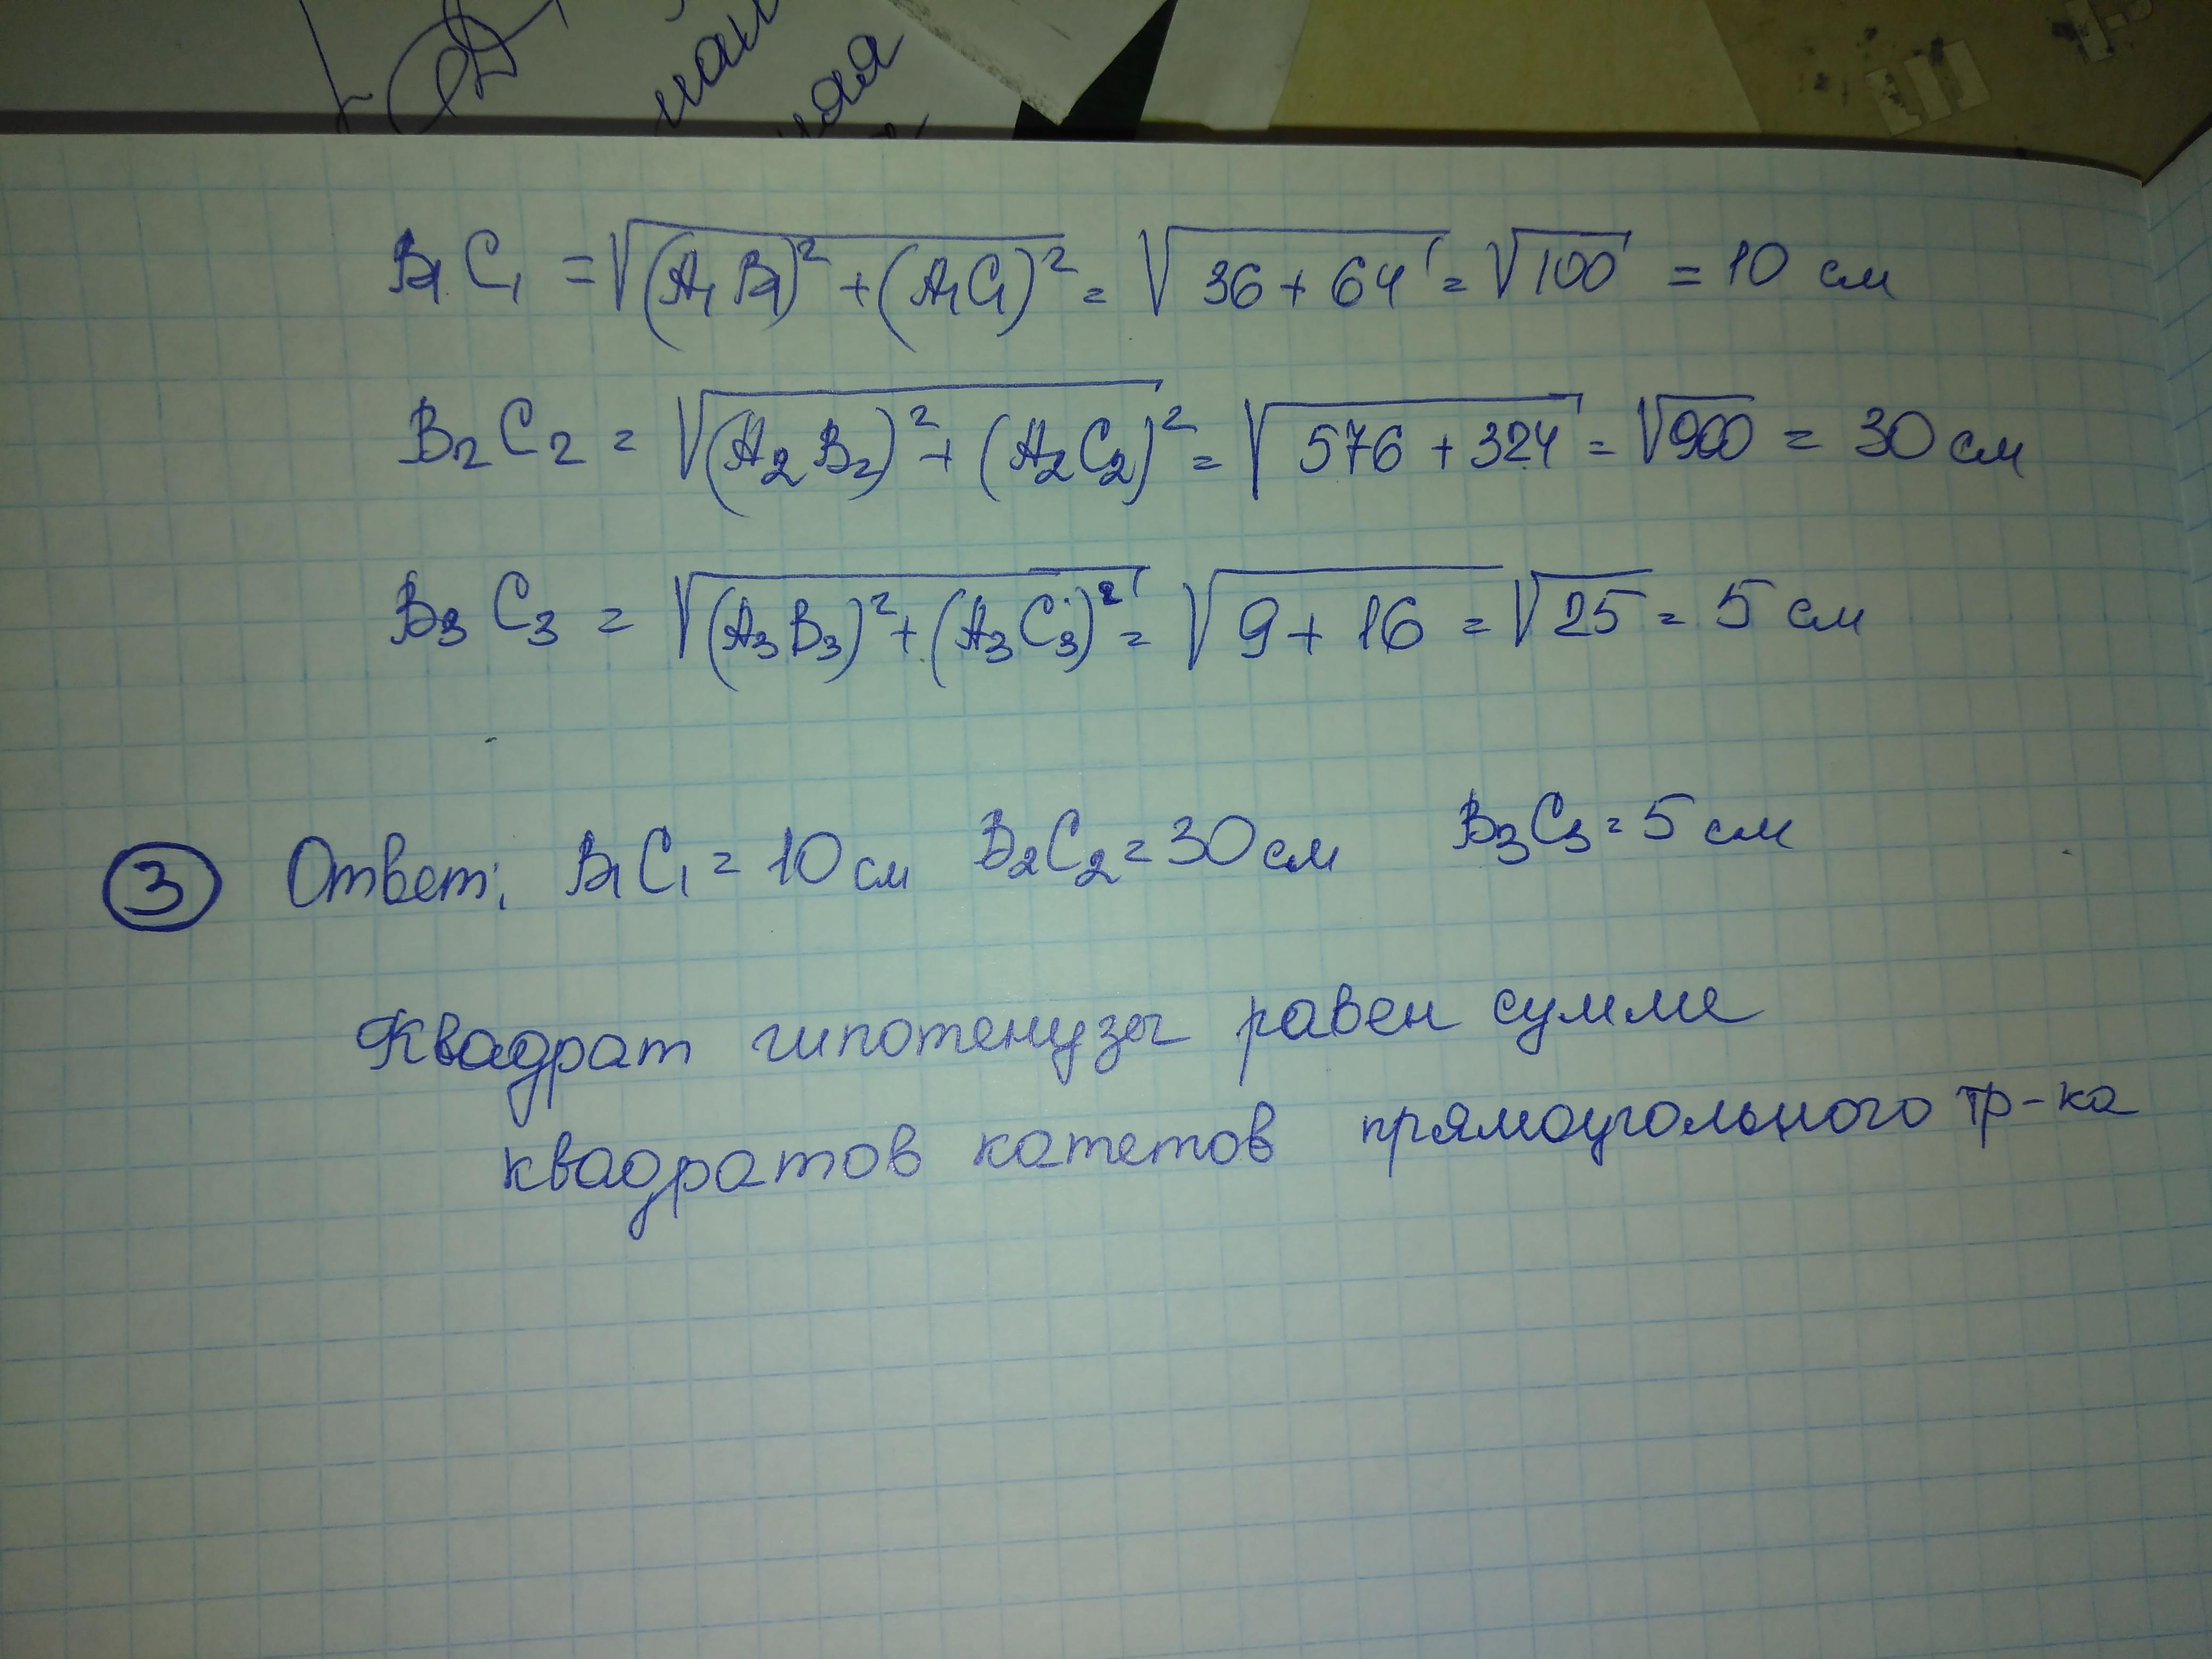 ная
B₁C₁ = √(A₁B₁)² + (A₁C₁)² = √36 + 64 = √100 = 10 см
B₂C₂ = √(A₂B₂)² + (A₂C₂)² = √576 + 324 = √900 = 30 см
B₃C₃ = √(A₃B₃)² + (A₃C₃)² = √9 + 16 = √25 = 5 см
③ Ответ: B₁C₁ = 10 см B₂C₂ = 30 см B₃C₃ = 5 см
Квадрат гипотенузы равен сумме
квадратов катетов прямоугольного тр-ка